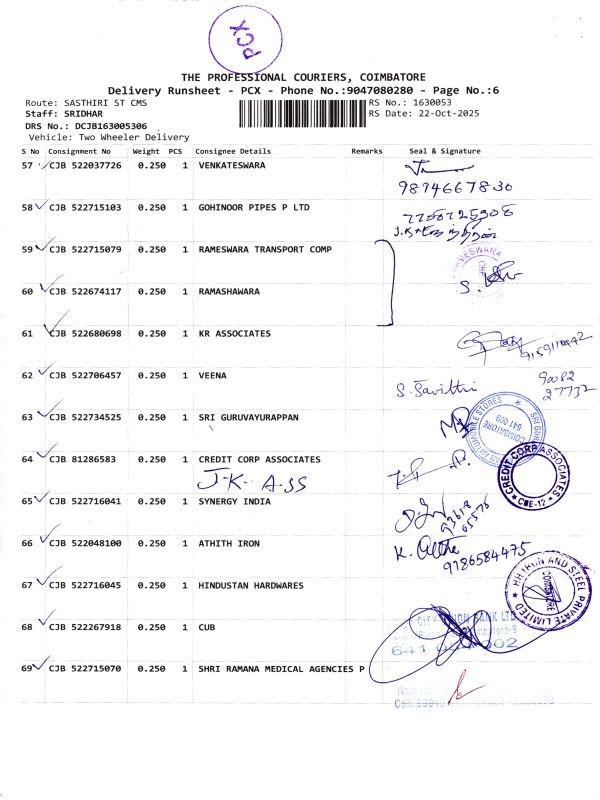 PCX
THE PROFESSIONAL COURIERS, COIMBATORE
Delivery Runsheet - PCX - Phone No.:9047080280 - Page No.:6
Route: SASTHIRI ST CMS
RS No.: 1630053
Staff: SRIDHAR
RS Date: 22-Oct-2025
DRS No.: DCJB163005306
Vehicle: Two Wheeler Delivery
S No Consignment No Weight PCS Consignee Details Remarks Seal & Signature
57 CJB 522037726 0.250 1 VENKATESWARA
9894667830
58 CJB 522715103 0.250 1 GOHINOOR PIPES P LTD
59 CJB 522715079 0.250 1 RAMESWARA TRANSPORT COMP
60 CJB 522674117 0.250 1 RAMASHAWARA
61 CJB 522680698 0.250 1 KR ASSOCIATES
62 CJB 522706457 0.250 1 VEENA
S. Savithri 90082 27732
63 CJB 522734525 0.250 1 SRI GURUVAYURAPPAN
COIMBATORE 641 009
64 CJB 81286583 0.250 1 CREDIT CORP ASSOCIATES
J-K- A-SS
CREDIT CORP ASSOCIATES CBE-12
65 CJB 522716041 0.250 1 SYNERGY INDIA
93618 65576
66 CJB 522048100 0.250 1 ATHITH IRON
9786584475
67 CJB 522716045 0.250 1 HINDUSTAN HARDWARES
IRON AND STEEL PRIVATE LIMITED COIMBATORE
68 CJB 522267918 0.250 1 CUB
69 CJB 522715070 0.250 1 SHRI RAMANA MEDICAL AGENCIES P